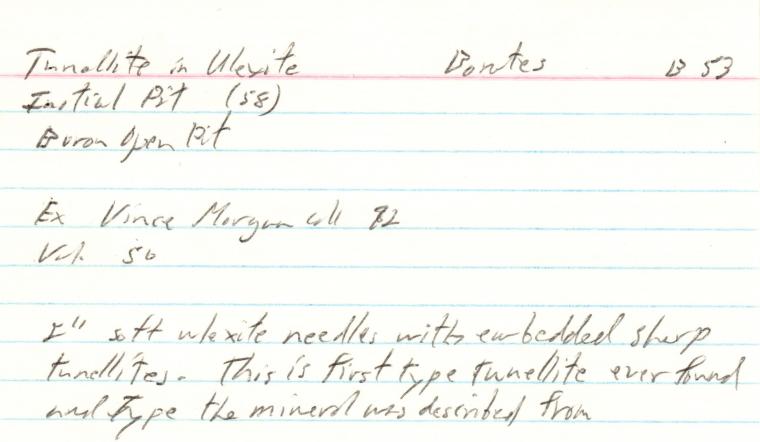 Tunellite in Ulexite Borates B 53
Initial Pit (58)
Boron Open Pit
Ex Vince Morgan coll 92
Val. 50
I" soft ulexite needles with embedded sharp
tunellites. This is first type tunellite ever found
and type the mineral was described from